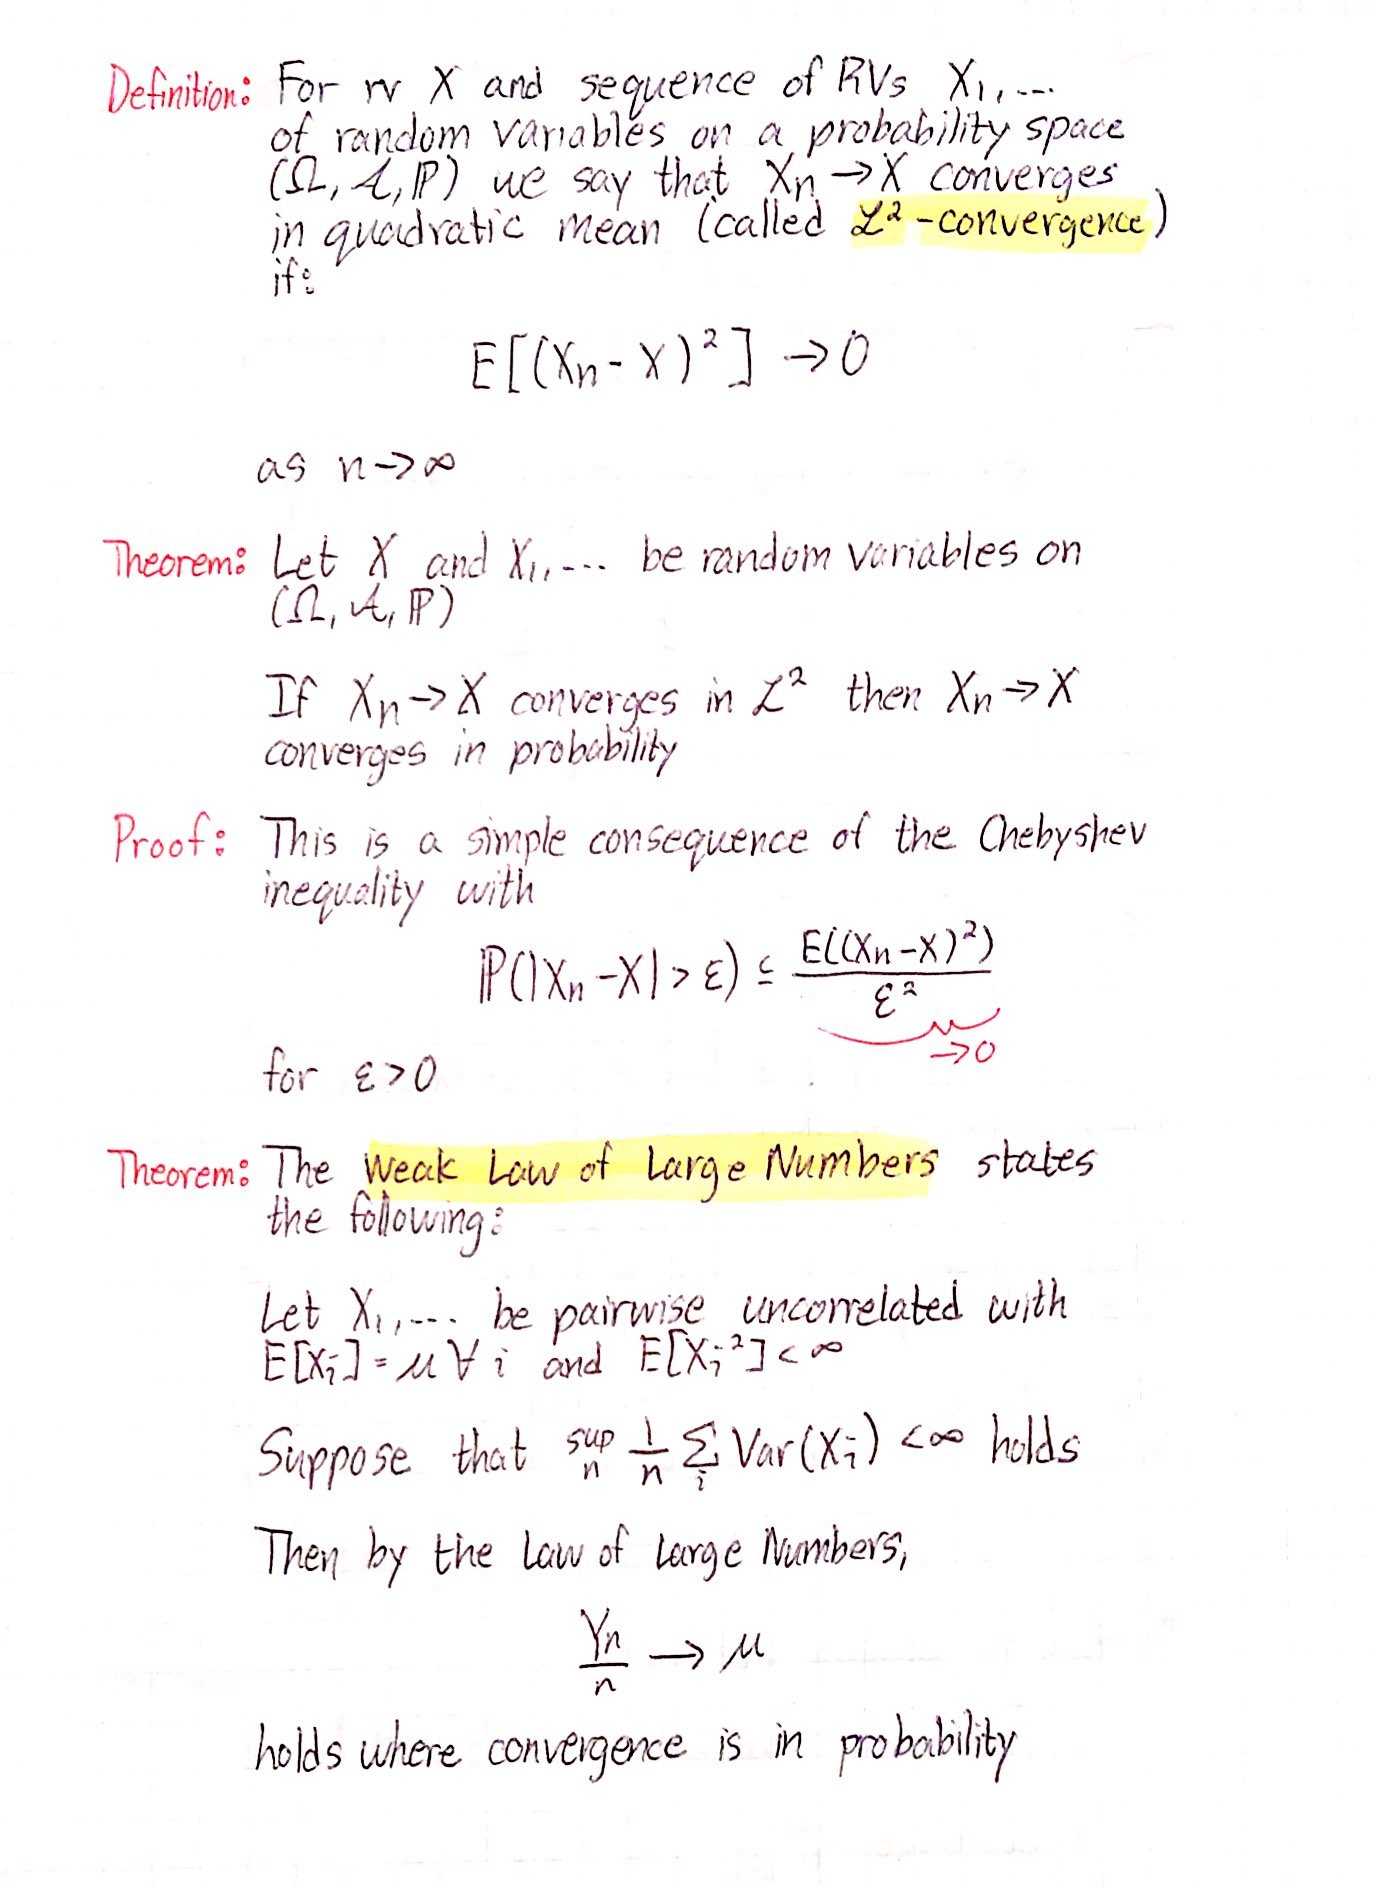 Definition: For rv X and sequence of RVs X₁, ...
of random variables on a probability space
(Ω, 𝒜, ℙ) we say that Xₙ → X converges
in quadratic mean (called ℒ² - convergence)
if:
E[(Xₙ - X)²] → 0
as n → ∞
Theorem: Let X and X₁, ... be random variables on
(Ω, 𝒜, ℙ)
If Xₙ → X converges in ℒ² then Xₙ → X
converges in probability
Proof: This is a simple consequence of the Chebyshev
inequality with
ℙ(|Xₙ - X| > ε) ≤ E((Xₙ - X)²) / ε²
→ 0
for ε > 0
Theorem: The Weak Law of Large Numbers states
the following:
Let X₁, ... be pairwise uncorrelated with
E[Xᵢ] = μ ∀ i and E[Xᵢ²] < ∞
Suppose that sup_n 1/n Σ_i Var(Xᵢ) < ∞ holds
Then by the Law of Large Numbers,
Yₙ / n → μ
holds where convergence is in probability